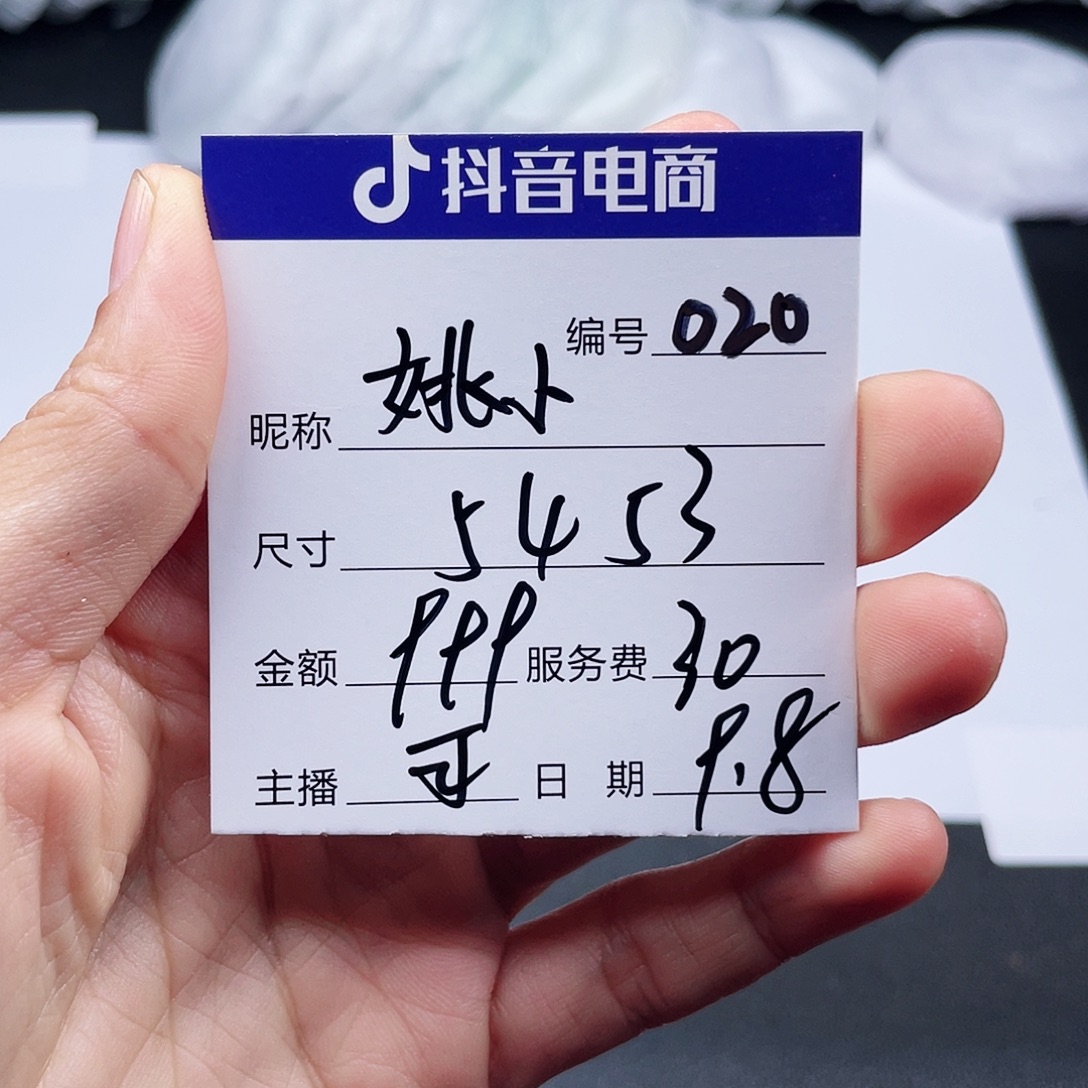 抖音电商
编号 020
昵称 姚小
尺寸 54 53
金额 999 服务费 30
主播 可 日 期 9.8